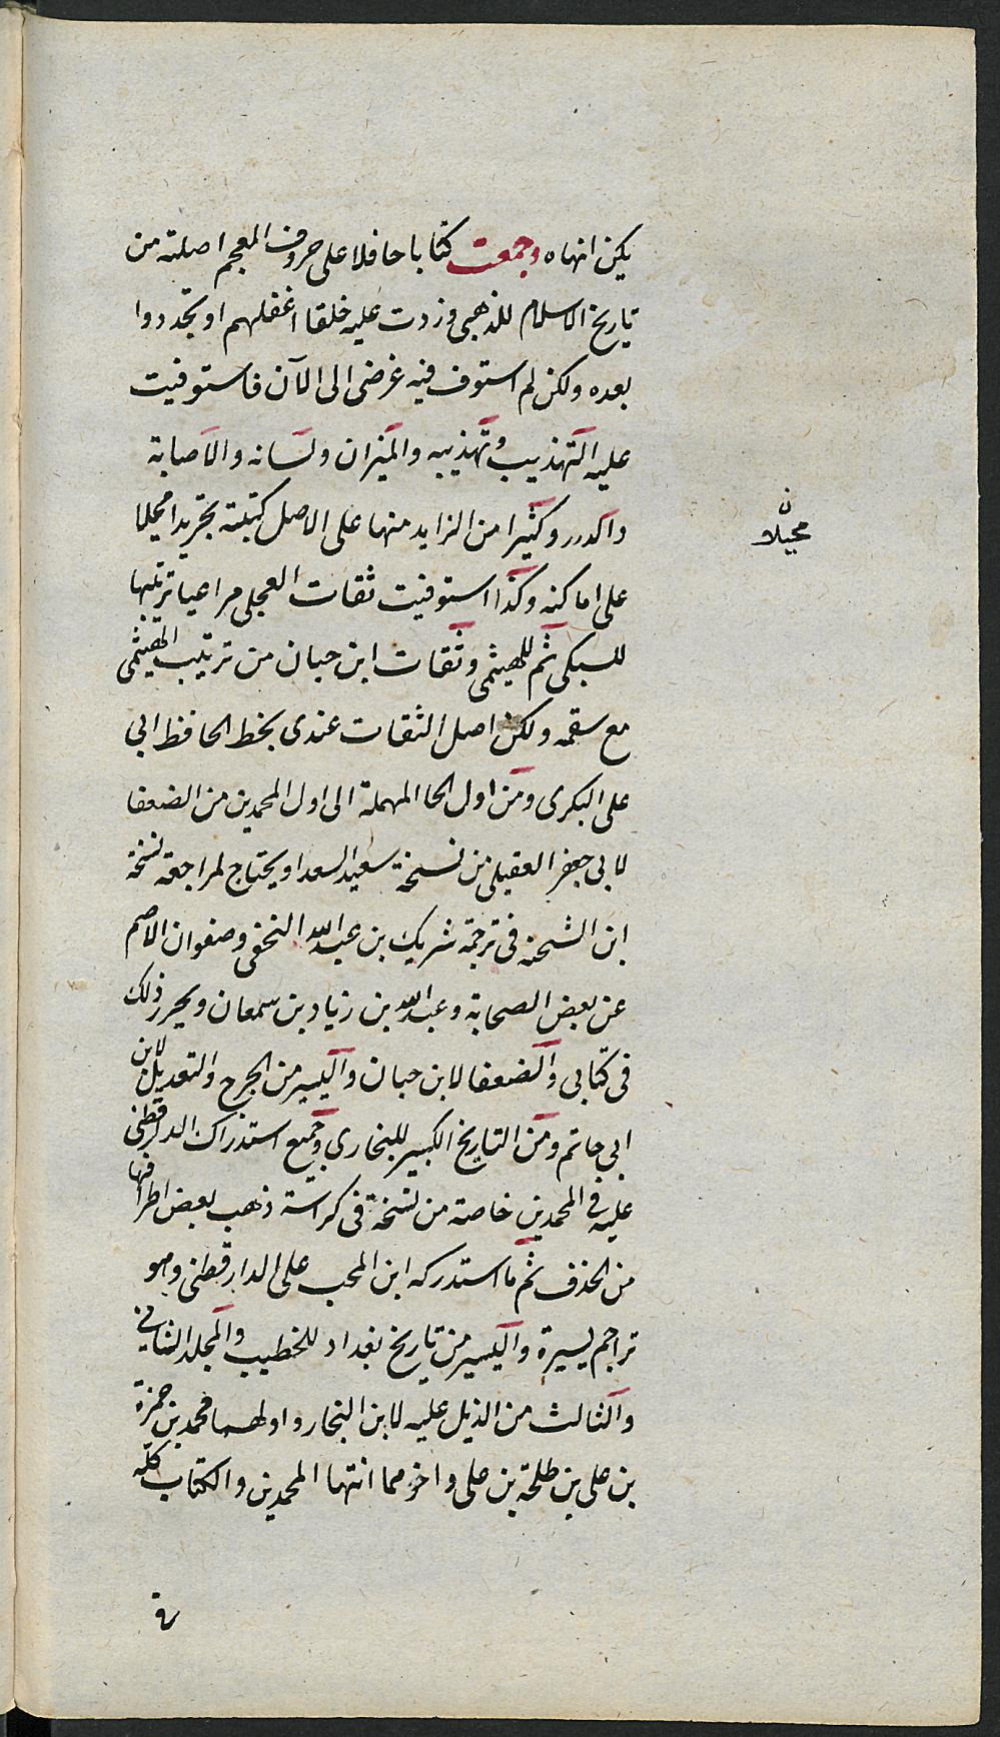 يكن انهاه وجمعت كتابا حافلا على حروف المعجم اصلته من
تاريخ الاسلام للذهبي وزدت عليه خلقا اغفلهم او تجددوا
بعده ولكن لم استوف فيه غرضى الى الآن فاستوفيت
عليه التهذيب وتهذيبه والميزان ولسانه والاصابة
والدرر وكثيرا من الزايد منها على الاصل كتبته تجريدا محيلا
على اماكنه وكذا استوفيت ثقات العجلى مراعيا ترتيبها
للسبكى ثم للهيثمى وثقات ابن حبان من ترتيب الهيثمى
مع سقمه ولكن اصل الثقات عندى بخط الحافظ ابى
على البكرى ومن اول الحا المهملة الى اول المحمدين من الضعفا
لابى جعفر العقيلى من نسخة سعيد السعدا ويحتاج لمراجعة نسخة
ابن الشحنه فى ترجمة شريك بن عبد الله النخعى وصفوان الاصم
عن بعض الصحابة وعبد الله بن زياد بن سمعان ويحرر ذلك
فى كتابى والضعفا لابن حبان واليسير من الجرح والتعديل لابن
ابى حاتم ومن التاريخ الكبير للبخارى وجميع استدراك الدارقطنى
عليه فى المحمدين خاصة من نسخة فى كراسة ذهب بعض اطرافها
من الحذف ثم ما استدركه ابن المحب على الدارقطنى وهو
تراجم يسيرة واليسير من تاريخ بغداد للخطيب والمجلد الثانى
والثالث من الذيل عليه لابن النجار واولهما محمد بن حمزة
بن على بن طلحة بن على واخرهما انتها المحمدين والكتاب كله
ن
محيلا